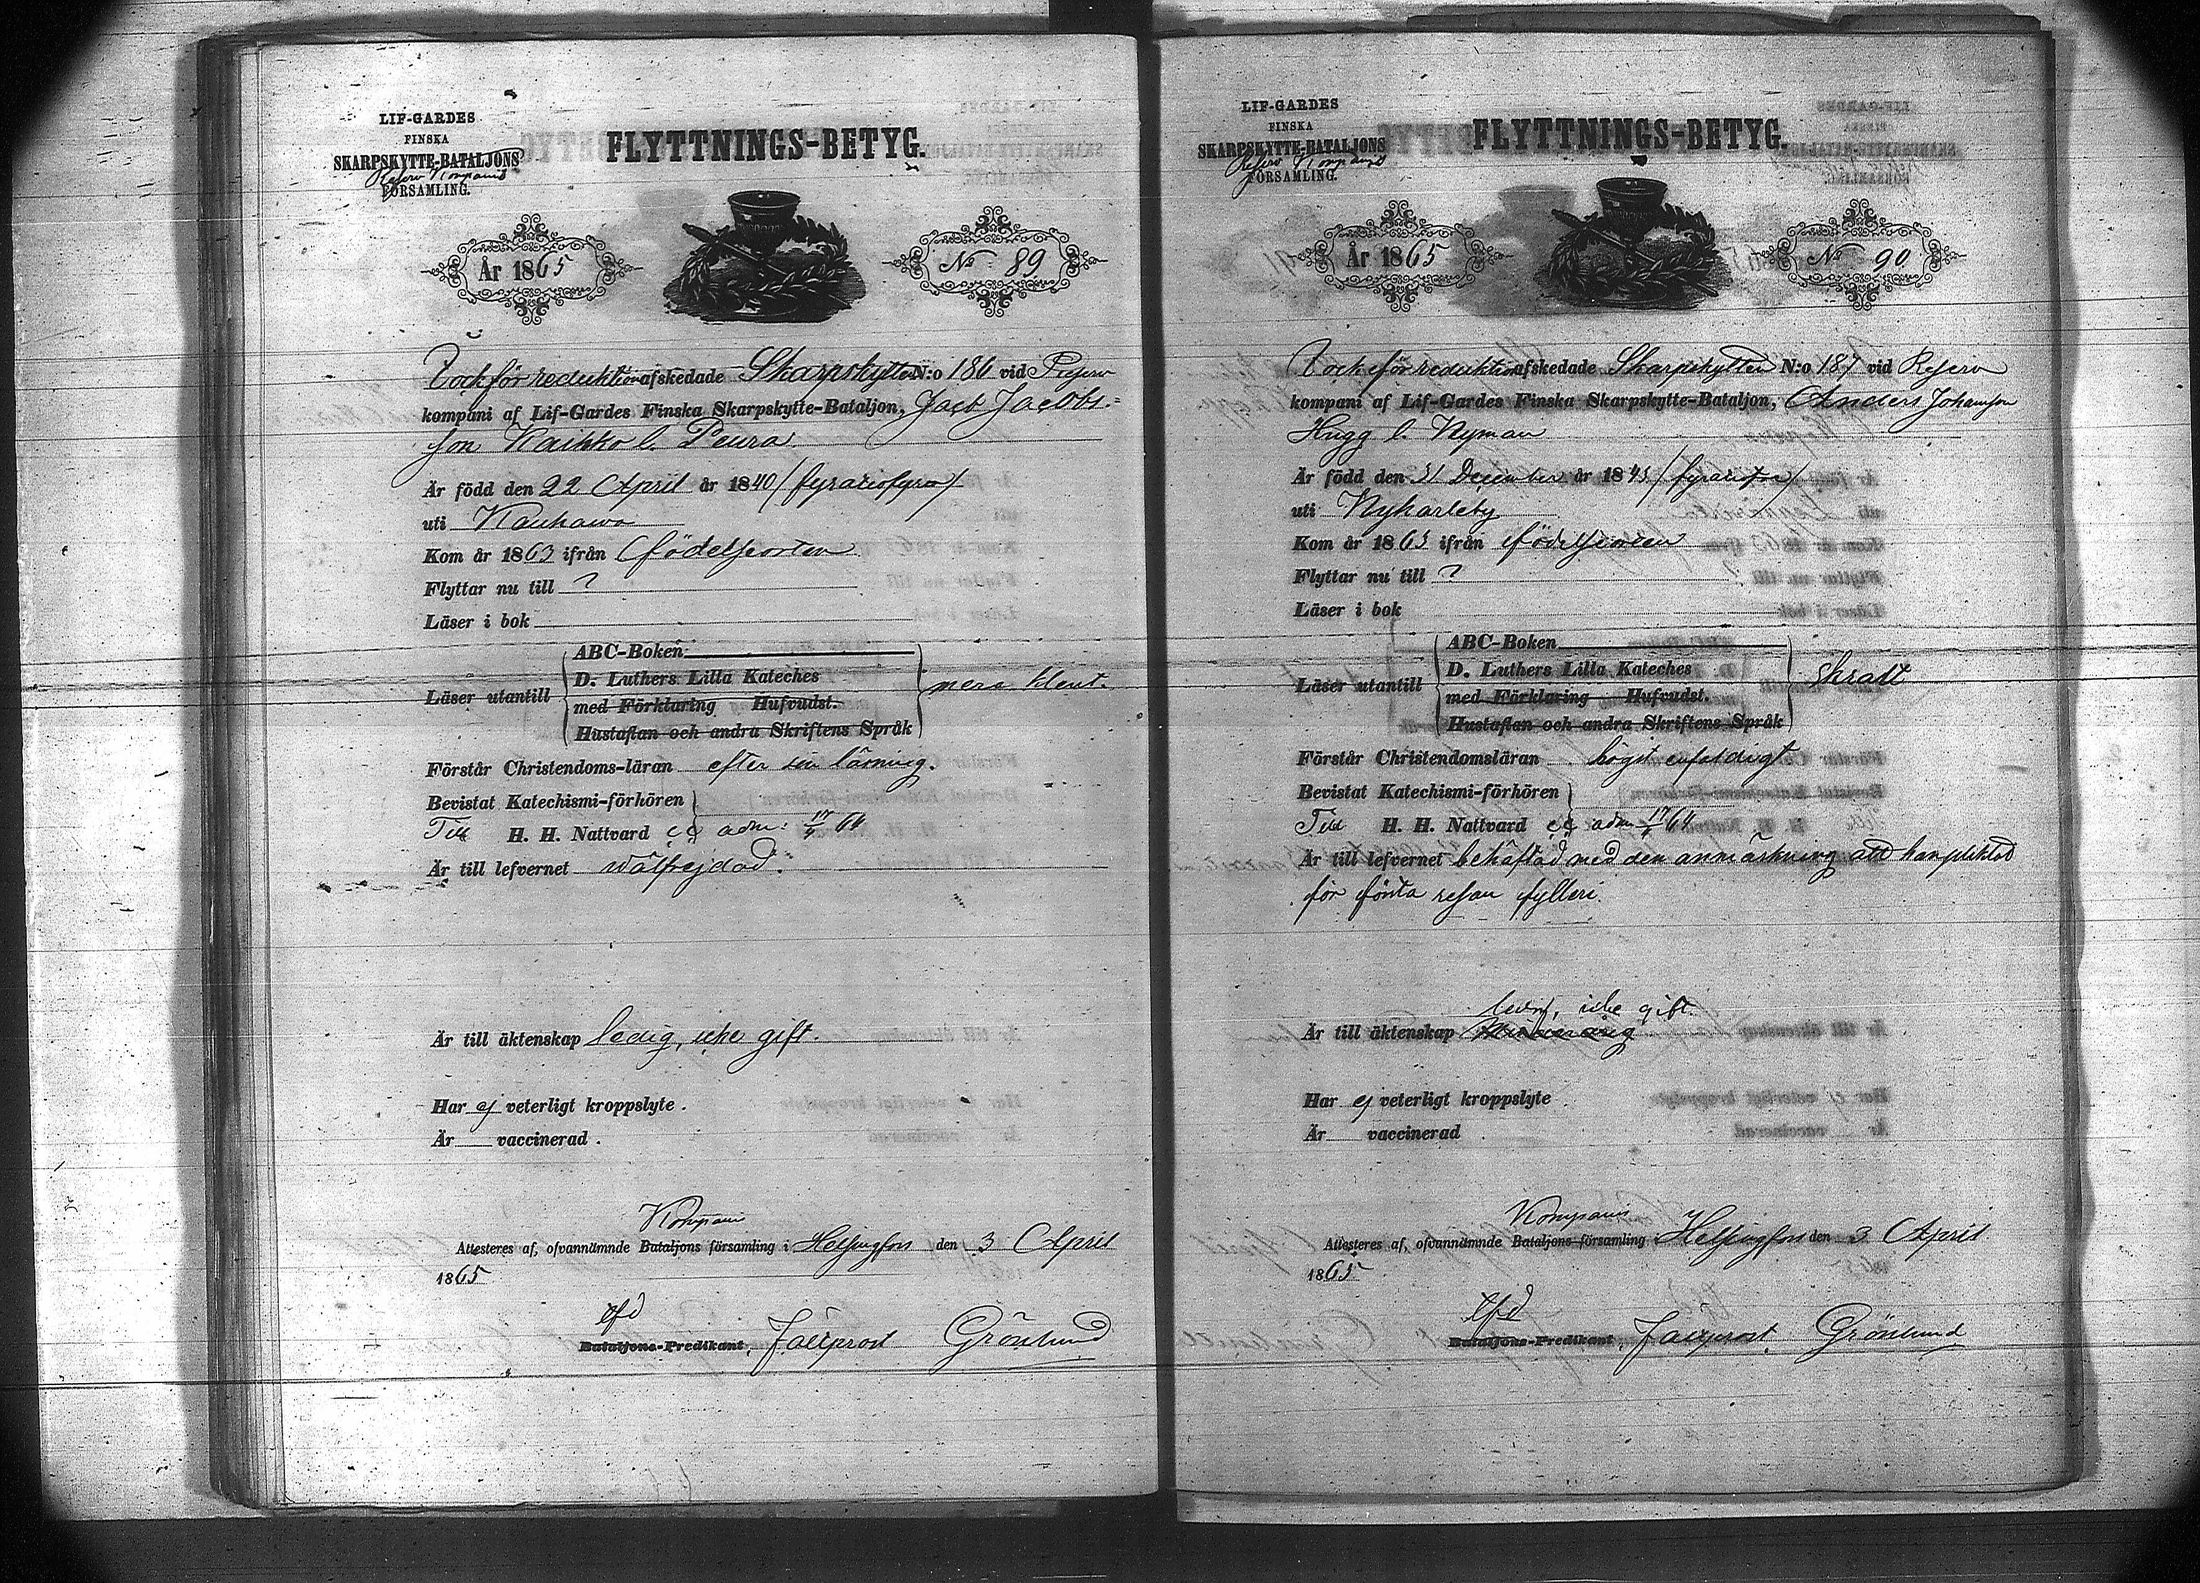 LIF-GARDES
FINSKA
SKARPSKYTTE-BATALJONS
Reserv Kompanis
FÖRSAMLING.
FLYTTNINGS-BETYG.
År 1865
No 89
för reduktion afskedade Skarpskytten N:o 186 vid Reserv
kompani af Lif-Gardes Finska Skarpskytte-Bataljon, Jacob Jacobs-
son Kaihko l. Peura
Är född den 22 April år 1840 (fyratio)
uti Kauhava
Kom år 1863 ifrån födelseorten
Flyttar nu till ?
Läser i bok
ABC-Boken
D. Luthers Lilla Kateches
Läser utantill
med Förklaring Hufvudst.
Hustaflan och andra Skriftens Språk
Förstår Christendoms-läran efter sin läsning.
Bevistat Katechismi-förhören
Till H. H. Nattvard adm. 17/4 64
Är till lefvernet wälfrejdad.
Är till äktenskap ledig, icke gift.
Har ej veterligt kroppslyte.
Är vaccinerad.
Kompani
Attesteres af, ofvannämnde Bataljons församling i Helsingfors den 3 April
1865
Bataljons-Predikant, Fältprost Grönlund
LIF-GARDES
FINSKA
SKARPSKYTTE-BATALJONS
Reserv Kompanis
FÖRSAMLING.
FLYTTNINGS-BETYG.
År 1865
No 90
för reduktion afskedade Skarpskytten N:o 187 vid Reserv
kompani af Lif-Gardes Finska Skarpskytte-Bataljon, Anders Johansson
Hugg l. Nyman
Är född den 31 December år 1843 (fyratiotre)
uti Nykarleby
Kom år 1863 ifrån födelseorten
Flyttar nu till ?
Läser i bok
ABC-Boken
D. Luthers Lilla Kateches
Läser utantill
med Förklaring Hufvudst.
Hustaflan och andra Skriftens Språk
Förstår Christendomsläran högst enfaldigt
Bevistat Katechismi-förhören
Till H. H. Nattvard adm. 17/4 64
Är till lefvernet behäftad med den anmärkning att han pliktat
för första resan fylleri.
ledig, icke gift.
Är till äktenskap
Har ej veterligt kroppslyte
Är vaccinerad
Kompanis
Attesteres af, ofvannämnde Bataljons församling Helsingfors den 3 April
1865
Bataljons-Predikant, Fältprost Grönlund